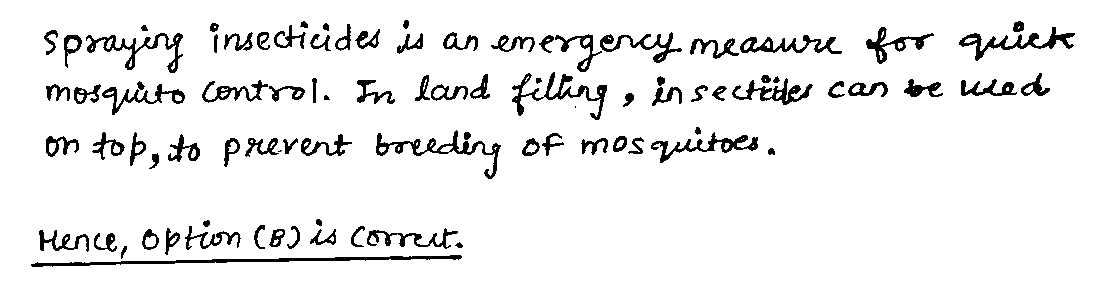 Spraying insecticides is an emergency measure for quick
mosquito control. In land filling, insectides can be used
on top, to prevent breeding of mosquitoes.
Hence, option (B) is correct.